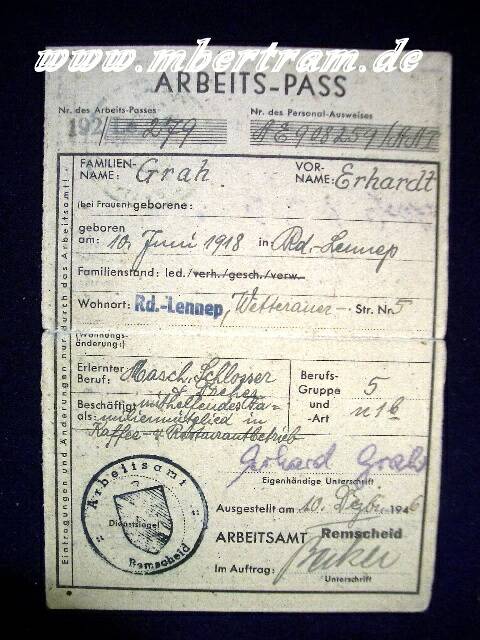 www.mbertram.de
ARBEITS-PASS
Nr. des Arbeits-Passes
Nr. des Personal-Ausweises
192/ 2579
AE908259/
FAMILIEN-NAME: Grah
VOR-NAME: Erhardt
(bei Frauen) geborene:
geboren am: 10. Juni 1918 in Rd.-Lennep
Familienstand: led./verh./gesch./verw.
Wohnort: Rd.-Lennep, Wetterauer- Str. Nr. 5
(Wohnungs-änderung:)
Erlernter Beruf: Masch. Schlosser
u. Dreher
Beschäftigt als: mithelfendes Fa-
milienmitglied in
Kaffee- u. Restaurantbetrieb
Berufs-Gruppe und -Art
5
16
Gerhard Grah
Eigenhändige Unterschrift
Ausgestellt am 10. Dezbr. 1946
ARBEITSAMT Remscheid
Im Auftrag:
Unterschrift
Arbeitsamt
Dienstsiegel
Remscheid
Eintragungen und Änderungen nur durch das Arbeitsamt!